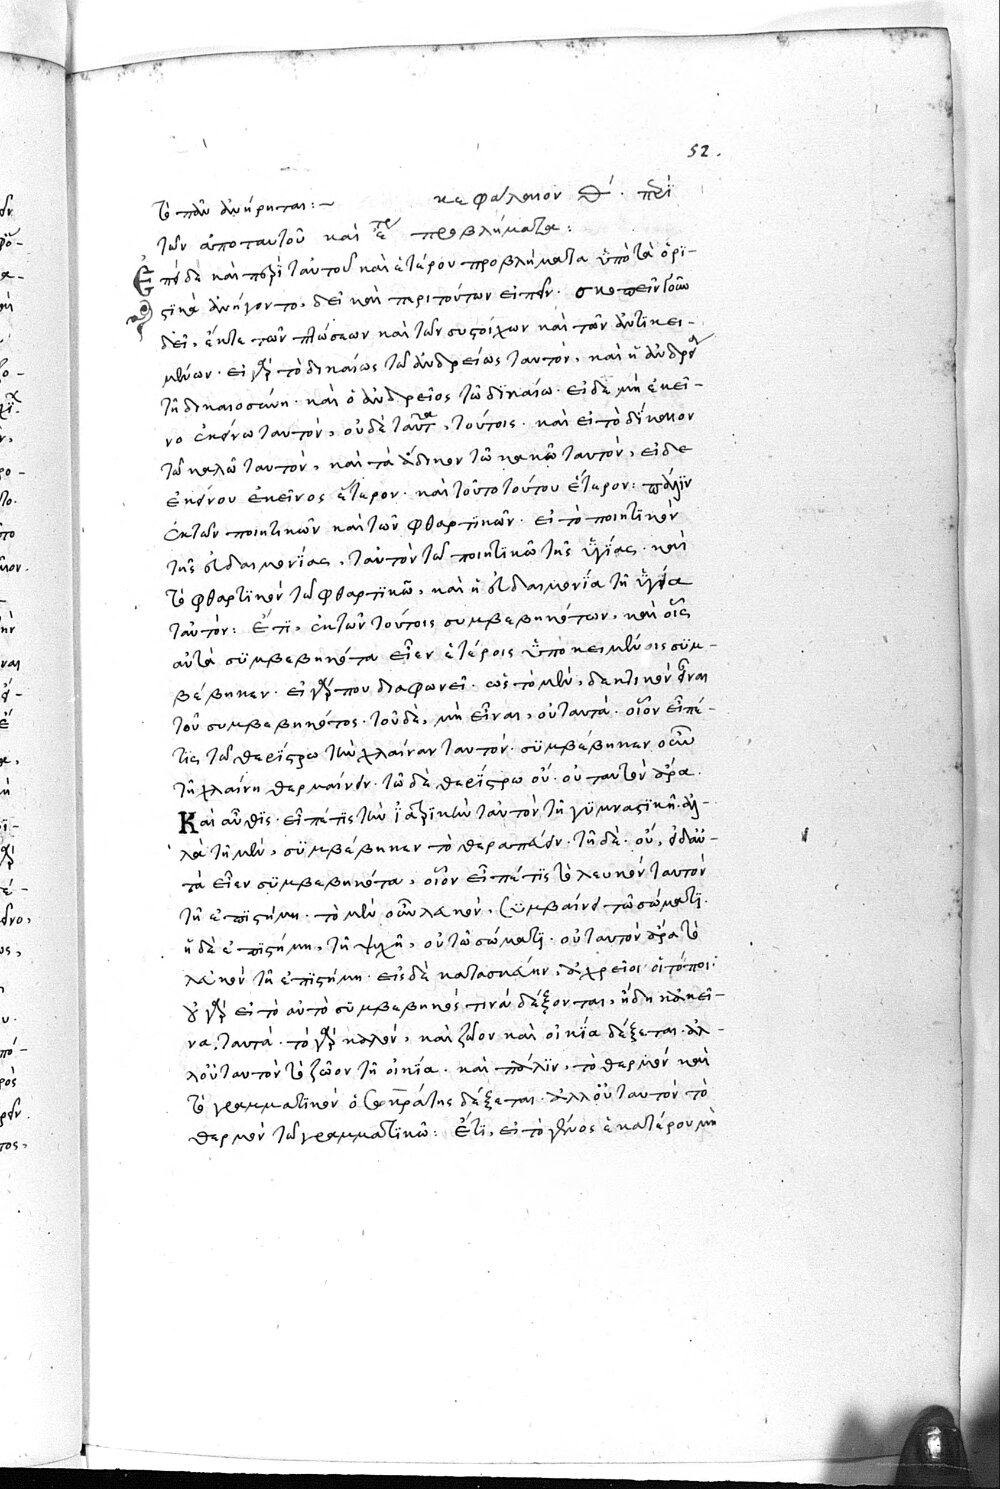 52.
τὸ πᾶν ἀνήρηται:~ κεφάλαιον Θ΄. περὶ
τῶν ἀπὸ ταυτοῦ καὶ ἑτέρου προβλήματα:
Ἐπεὶ δὲ καὶ περὶ ταυτοῦ καὶ ἑτέρου προβλήματα ὑπὸ τὰ ὁρι-
στικὰ ἀνήγοντο, δεῖ καὶ περὶ τούτων εἰπεῖν. σκοπεῖν οὖν
δεῖ, ἔκ τε τῶν πτώσεων καὶ τῶν συστοίχων καὶ τῶν ἀντικει-
μένων. εἰ γὰρ τὸ δικαίως τῶ ἀνδρείως ταυτὸν, καὶ ἡ ἀνδρεία
τῆ δικαιοσύνη. καὶ ὁ ἀνδρεῖος τῶ δικαίω. εἰ δὲ μὴ ἐκεῖ-
νο ἐκείνω ταυτὸν, οὐδὲ ταῦτα τούτοις. καὶ εἰ τὸ δίκαιον
τῶ καλῶ ταυτὸν, καὶ τὸ ἄδικον τῶ κακῶ ταυτὸν, εἰ δὲ
ἐκείνου ἐκεῖνος ἕτερον. καὶ τοῦτο τούτου ἕτερον: πάλιν
ἐκ τῶν ποιητικῶν καὶ τῶν φθαρτικῶν. εἰ τὸ ποιητικὸν
τῆς εὐδαιμονίας, ταυτὸν τῶ ποιητικῶ τῆς ὑγίας. καὶ
τὸ φθαρτικὸν τῶ φθαρτικῶ, καὶ ἡ εὐδαιμονία τῆ ὑγεία
ταυτόν: Ἔτι, ἐκ τῶν τούτοις συμβεβηκότων, καὶ οἷς
αὐτὰ συμβεβηκότα εἶεν ἑτέροις ὑποκειμένοις συμ-
βέβηκεν. εἰ γάρ που διαφωνεῖ. ὡς τὸ μὲν, δεκτικὸν εἶναι
τοῦ συμβεβηκότος. τοῦ δὲ, μὴ εἶναι, οὐ ταυτά. οἷον εἴπέ-
τις τῶ θερίστρω τὴν χλαίναν ταυτόν. συμβέβηκεν οὖν
τῆ χλαίνη θερμαίνειν. τῶ δὲ θερίστρω οὔ. οὐ ταυτὸν ἄρα.
Καὶ αὖθις. εἴπέτις τὴν ἰατρικὴν ταυτὸν τῆ γυμναστικῆ. ἀλ-
λὰ τῆ μὲν, συμβέβηκεν τὸ θεραπεύειν. τῆ δὲ. οὔ, εἰ δ' αὐ-
τὰ εἶεν συμβεβηκότα, οἷον εἴπέτις τὸ λευκὸν ταυτὸν
τῆ ἐπιστήμη. τὸ μὲν οὖν λευκὸν, συμβαίνει τῶ σώματι.
ἡ δὲ ἐπιστήμη, τῆ ψυχῆ, οὐ τῶ σώματι. οὐ ταυτὸν ἄρα τὸ
λευκὸν τῆ ἐπιστήμη. εἰς δὲ κατασκευὴν, ἀχρεῖοι οἱ τόποι.
οὐ γὰρ εἰ τὸ αὐτὸ συμβεβηκός τινὰ δέξονται, ἤδη κἀκεῖ-
να, ταυτά. τὸ γὰρ καλὸν, καὶ ζῶον καὶ οἰκία δέξεται. ἀλ-
λ' οὐ ταυτὸν τὸ ζῶον τῆ οἰκία. καὶ πάλιν, τὸ θερμὸν καὶ
τὸ γραμματικὸν ὁ Σωκράτης δέξεται. ἀλλ' οὐ ταυτὸν τὸ
θερμὸν τῶ γραμματικῶ: Ἔτι, εἰ τὸ γένος ἑκατέρου μὴ